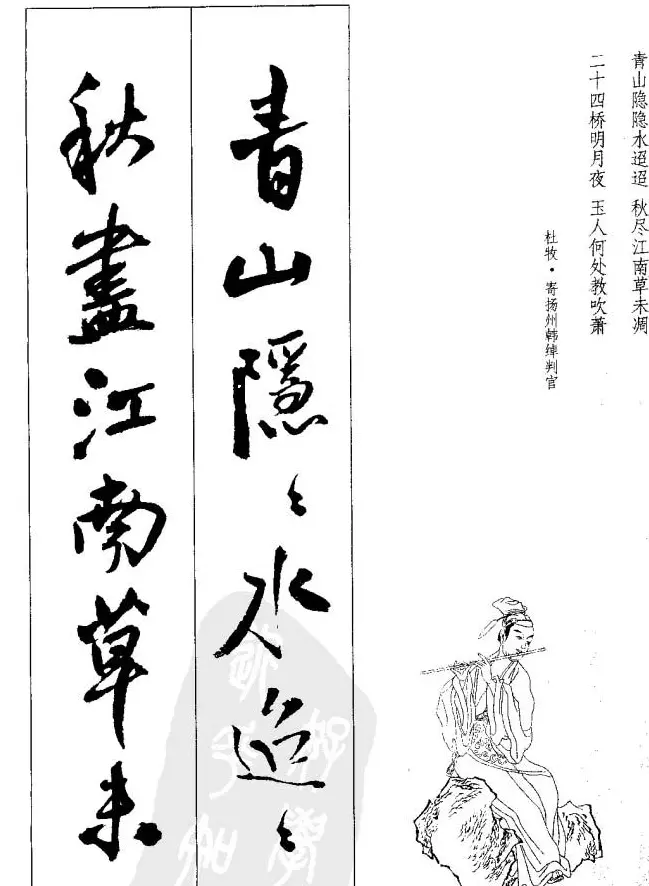 青山隐隐水迢迢 秋尽江南草未凋
二十四桥明月夜 玉人何处教吹萧
杜牧·寄扬州韩绰判官
青山隱〻水迢〻
秋盡江南草未